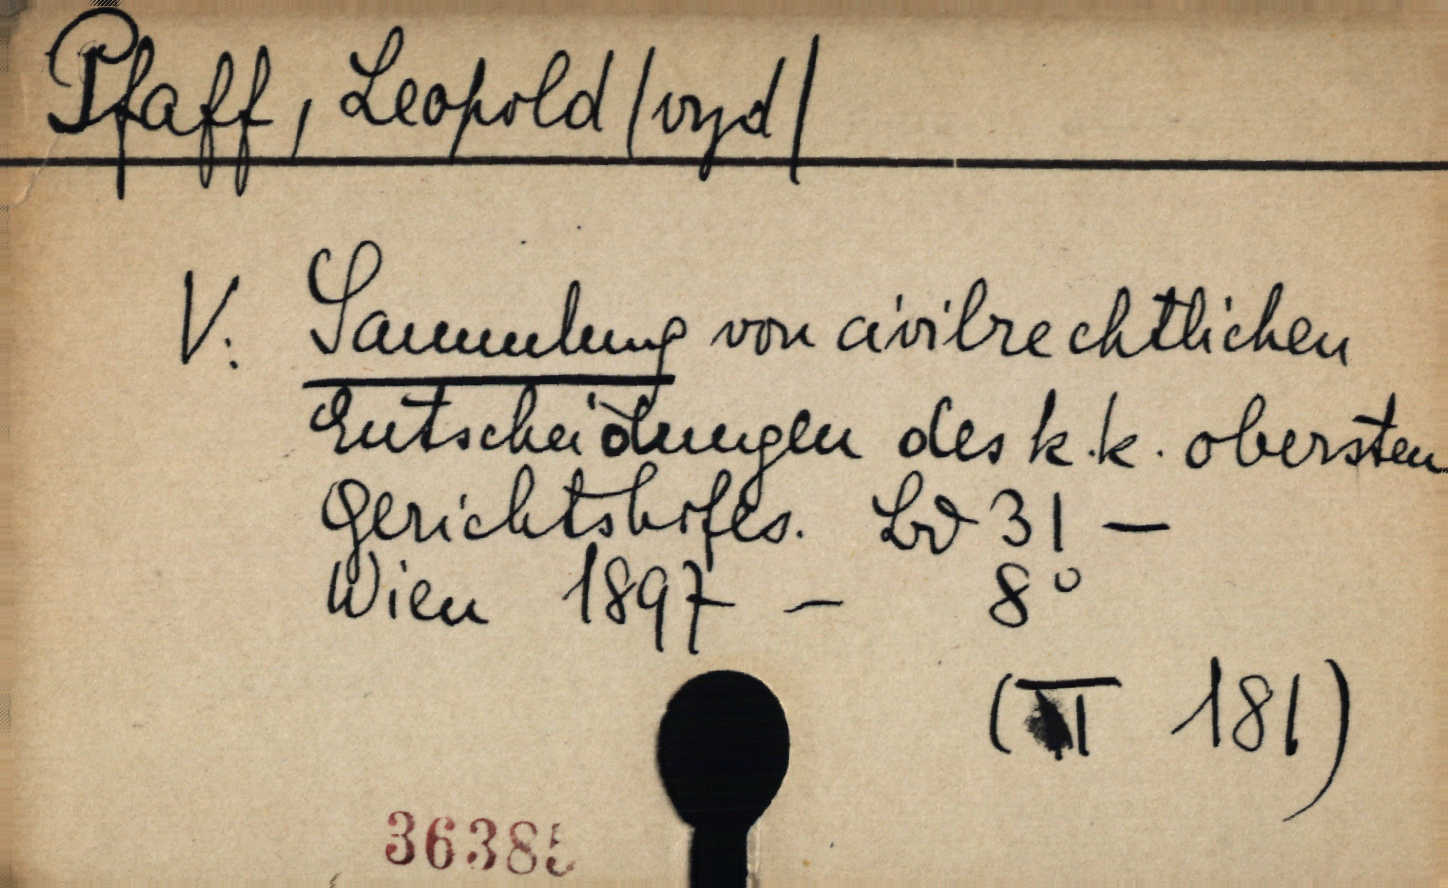 Pfaff, Leopold /vyd/
V: Sammlung von civilrechtlichen
Entscheidungen des k.k. obersten
Gerichtshofes. Bd 31 —
Wien 1897 — 8°
(II 181)
36385